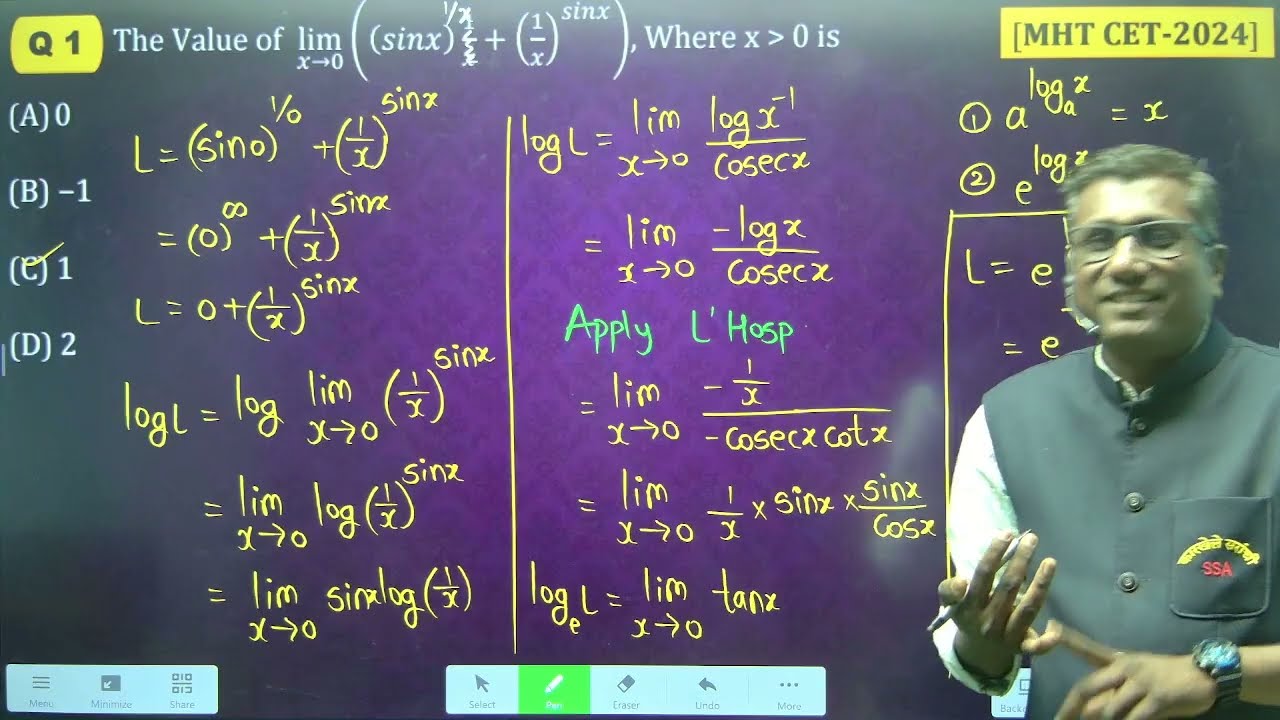 Q 1 The Value of lim x→0 ((sinx)^1/x + (1/x)^sinx), Where x > 0 is
[MHT CET-2024]
(A) 0
(B) −1
(C) 1
(D) 2
L = (sin0)^1/0 + (1/x)^sinx
= (0)^∞ + (1/x)^sinx
L = 0 + (1/x)^sinx
logL = log lim x→0 (1/x)^sinx
= lim x→0 log(1/x)^sinx
= lim x→0 sinxlog(1/x)
logL = lim x→0 logx^-1/cosecx
= lim x→0 -logx/cosecx
Apply L'Hosp
= lim x→0 -1/x/-cosecxcotx
= lim x→0 1/x × sinx × sinx/cosx
log_e L = lim x→0 tanx
① a^log_a x = x
② e^log x
L = e
= e
SSA
Menu
Minimize
Share
Select
Pen
Eraser
Undo
More